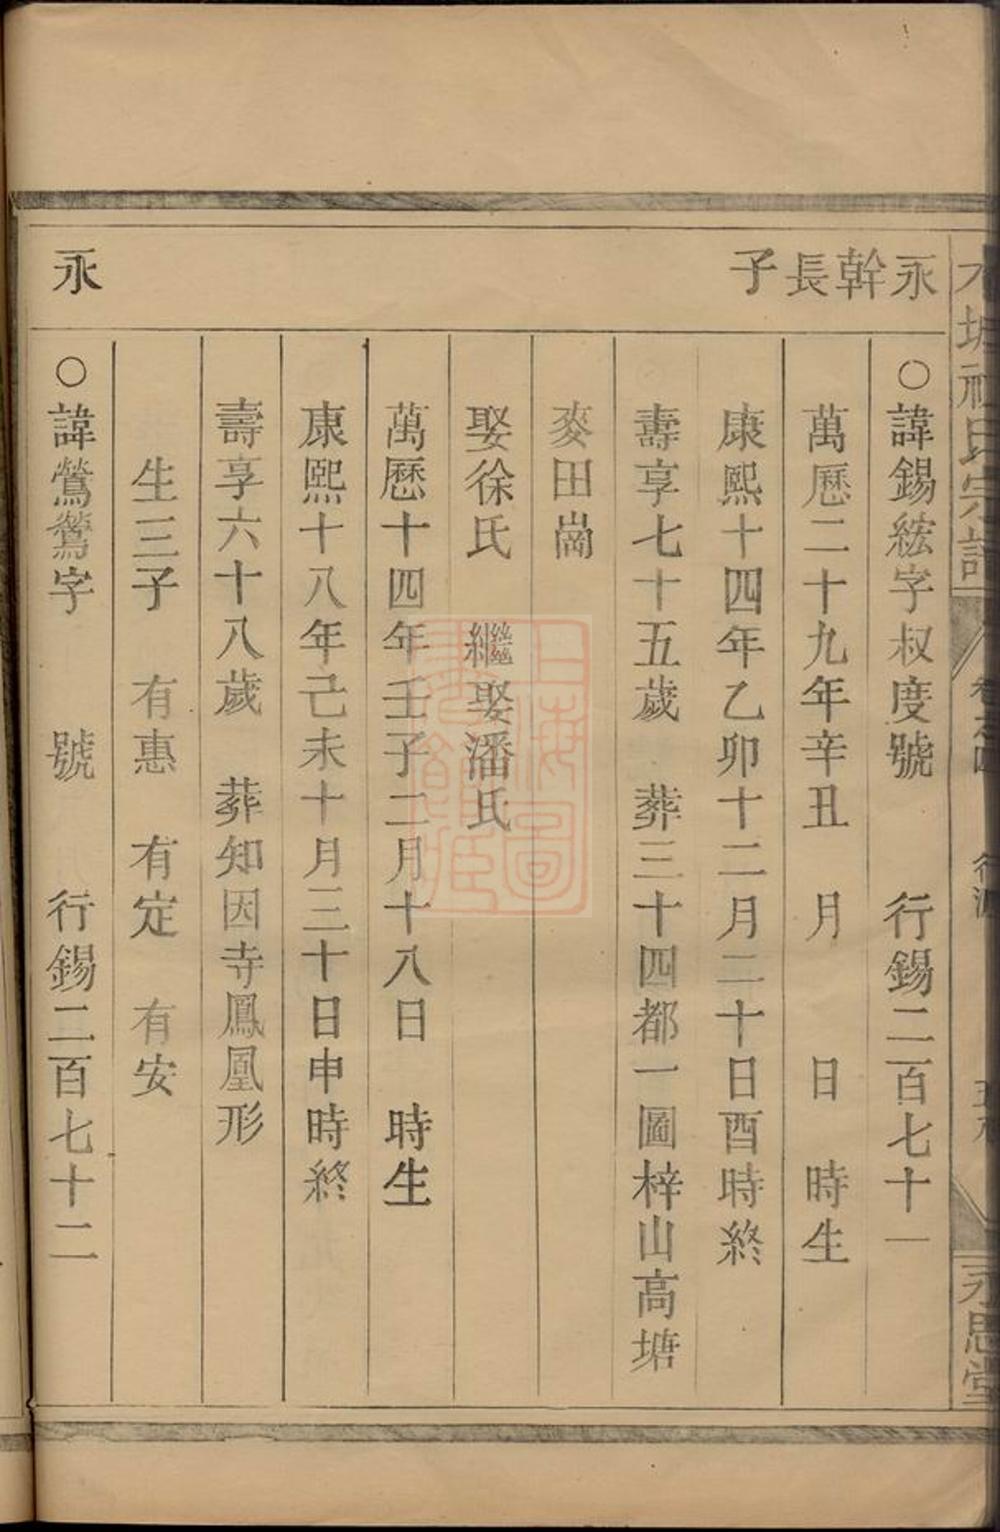 永幹長子
○諱錫綋字叔度號 行錫二百七十一
萬曆二十九年辛丑 月 日 時生
康熙十四年乙卯十二月二十日酉時終
壽享七十五歲 葬三十四都一圖梓山高塘
麥田崗
娶徐氏 繼娶潘氏
萬曆十四年壬子二月十八日 時生
康熙十八年己未十月三十日申時終
壽享六十八歲 葬知因寺鳳凰形
生三子 有惠 有定 有安
永
○諱鶯鶯字 號 行錫二百七十二
氏宗譜
卷之四
行
永思堂
上海圖書館藏